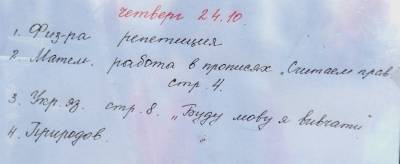 четверг 24.10.
1. Физ-ра репетиция
2. Матем. работа в прописях „Считаем прав"
стр. 4.
3. Укр. яз. стр. 8. „Буду мову я вивчати"
4. Природов. "